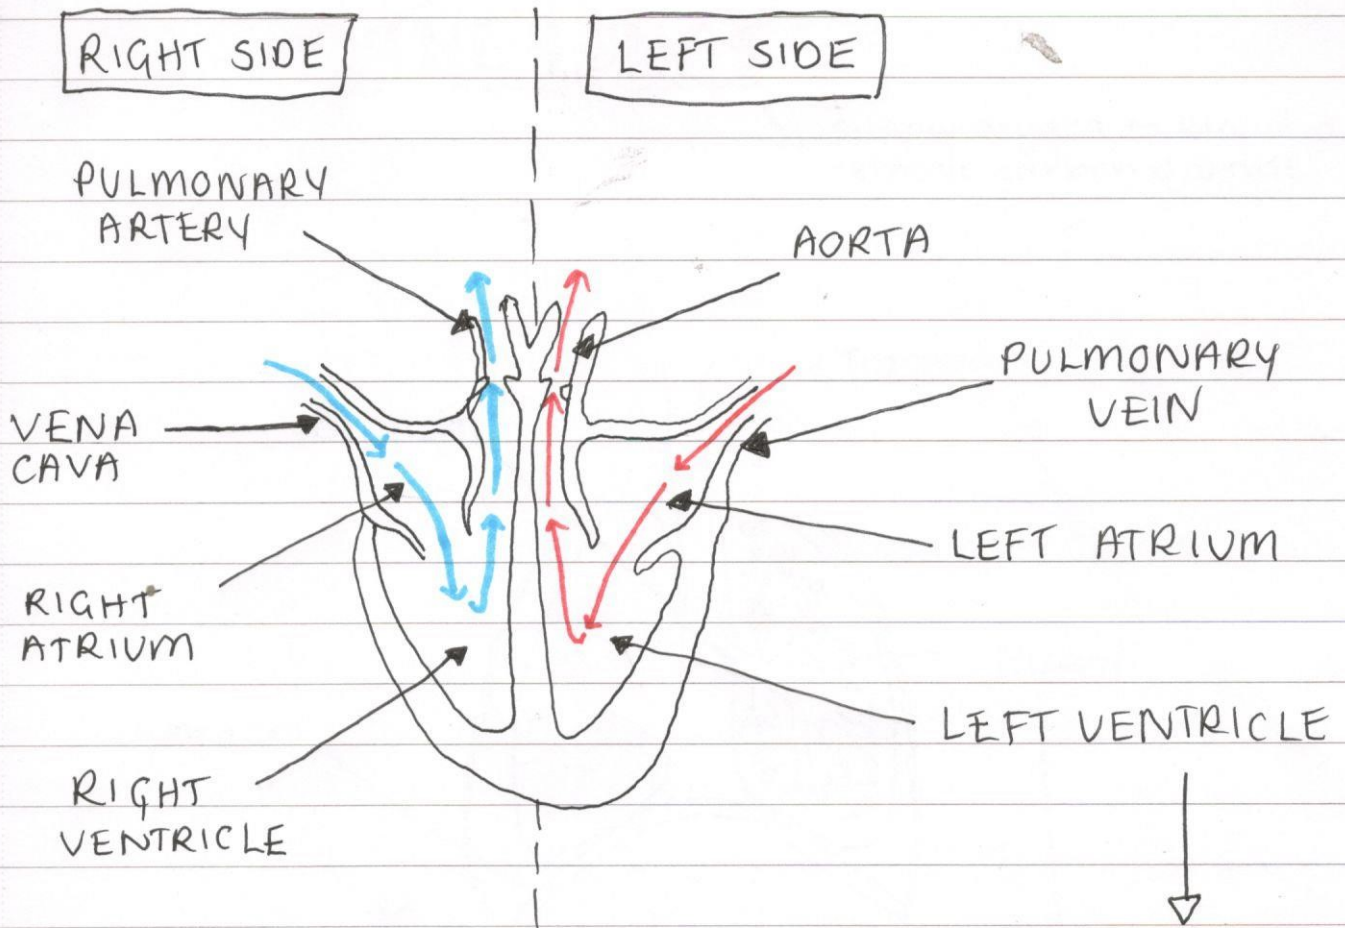 RIGHT SIDE
LEFT SIDE
PULMONARY
ARTERY
AORTA
PULMONARY
VEIN
VENA
CAVA
LEFT ATRIUM
RIGHT
ATRIUM
LEFT VENTRICLE
RIGHT
VENTRICLE